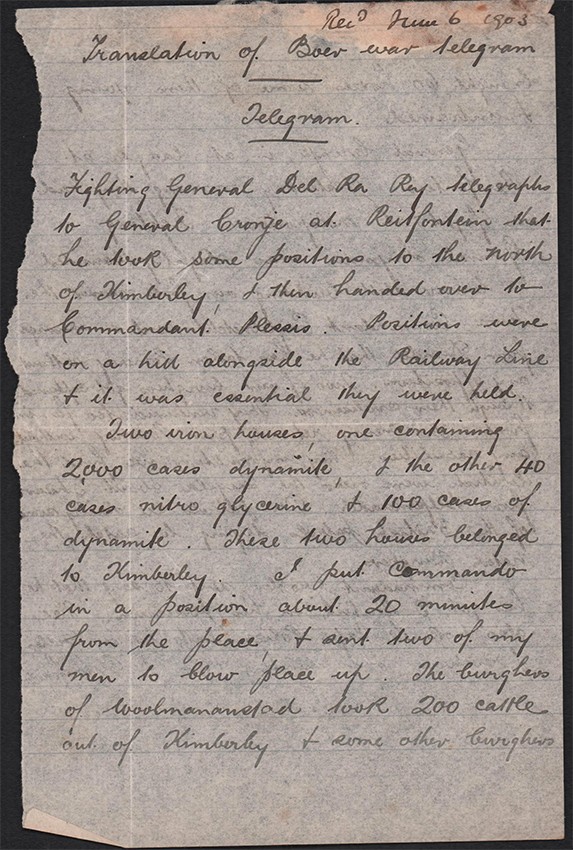 Rec'd June 6 1903
Translation of Boer war telegram
Telegram.
Fighting General Del Ra Rey telegraphs
to General Cronje at Reitfontein that
he took some positions to the north
of Kimberley, & then handed over to
Commandant Plessis. Positions were
on a hill alongside the Railway Line
& it was essential they were held.
Two iron houses, one containing
2000 cases dynamite, & the other 40
cases nitro glycerine & 100 cases of
dynamite. These two houses belonged
to Kimberley. I put Commando
in a position about 20 minutes
from the place, & sent two of my
men to blow place up. The burghers
of Woolmananstad took 200 cattle
out of Kimberley & some other burghers